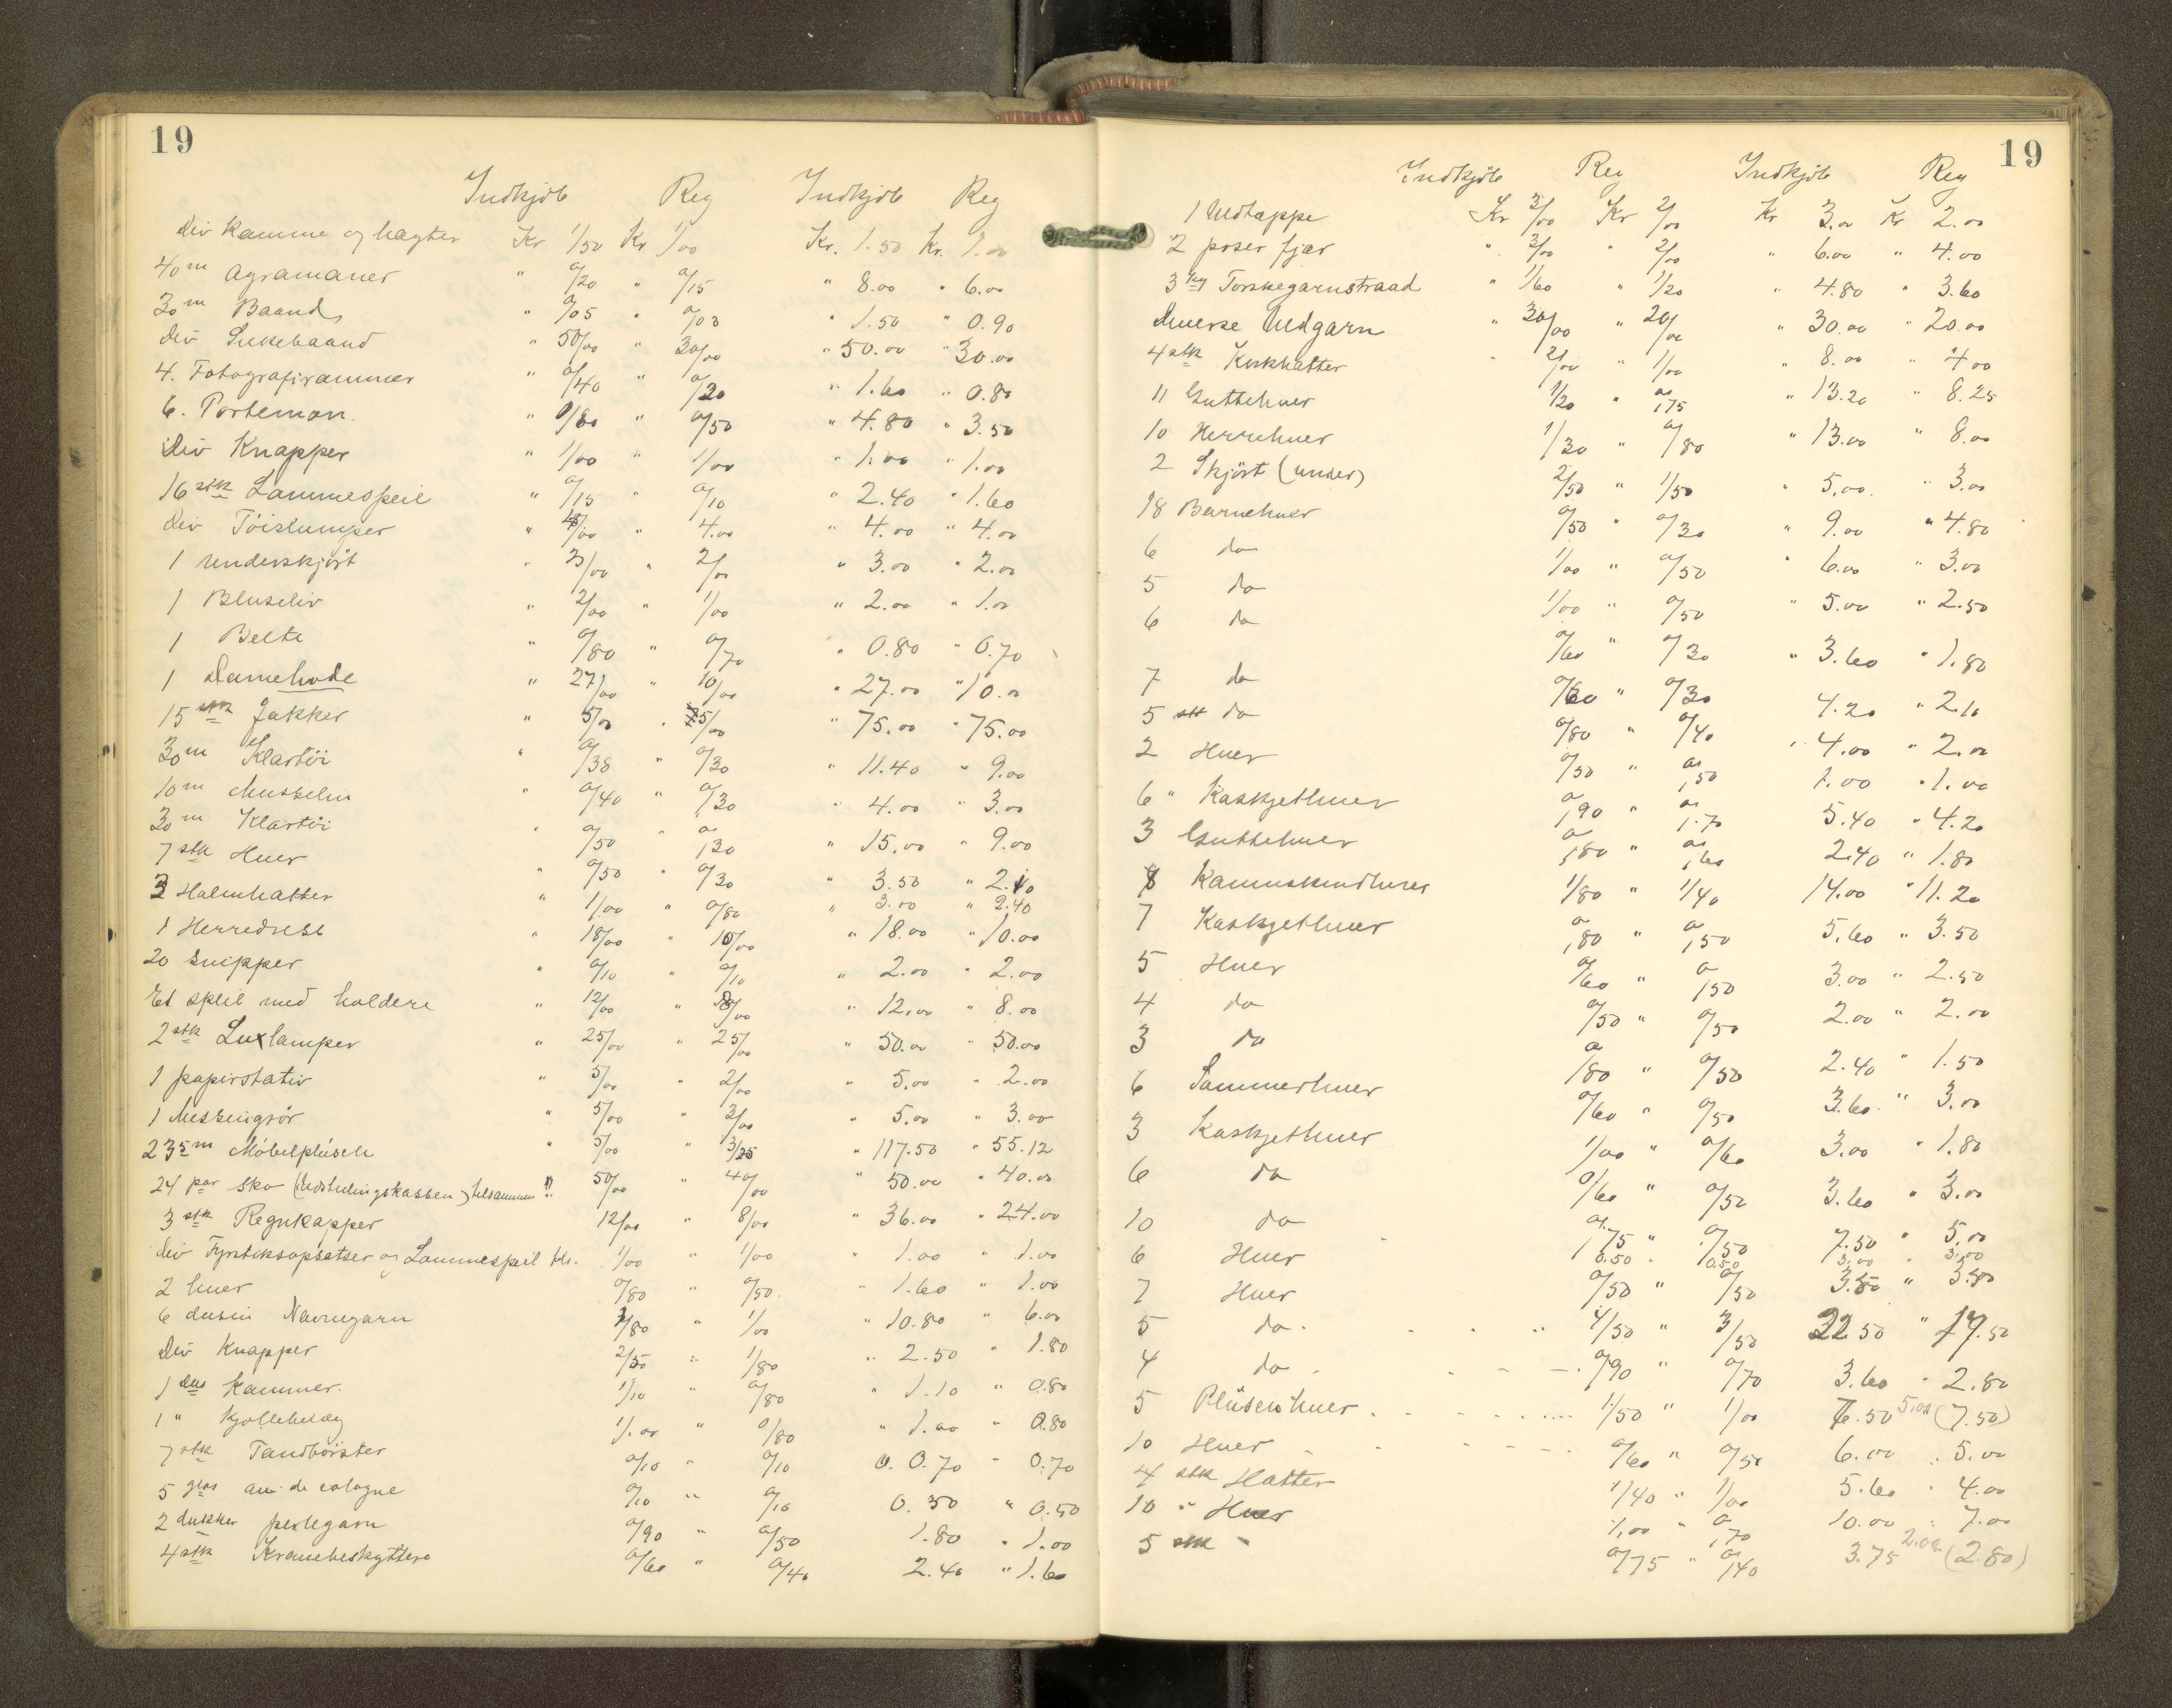 19
Indkjöb Reg Indkjöb Reg
Div kamme og hægter Kr 1/50 Kr 1/00 Kr. 1.50 Kr. 1.00
40 m Agramaner " 0/20 " 0/15 " 8.00 " 6.00
30 m Baand " 0/05 " 0/03 " 1.50 " 0.90
Div Silkebaand " 50/00 " 30/00 " 50.00 " 30.00
4. Fotografirammer " 0/40 " 0/20 " 1.60 " 0.80
6. Portemon. " 0/80 " 0/50 " 4.80 " 3.50
Div Knapper " 1/00 " 1/00 " 1.00 " 1.00
16 stk Lammespeil " 0/15 " 0/10 " 2.40 " 1.60
Div Töislumper " 4/00 " 4.00 " 4.00 " 4.00
1 underskjört " 3/00 " 2/00 " 3.00 " 2.00
1 Bluseliv " 2/00 " 1/00 " 2.00 " 1.00
1 Belte " 0/80 " 0/70 " 0.80 " 0.70
1 Damekode " 27/00 " 10/00 " 27.00 " 10.00
15 stk Jakker " 5/00 " 5/00 " 75.00 " 75.00
30 m Klartöi " 0/38 " 0/30 " 11.40 " 9.00
10 m Musselin " 0/40 " 0/30 " 4.00 " 3.00
30 m Klartöi " 0/50 " 0/30 " 15.00 " 9.00
7 stk Huer " 0/50 " 0/30 " 3.50 " 2.10
3 Halmhatter " 1/00 " 0/80 " 3.00 " 2.40
1 Herredress " 18/00 " 10/00 " 18.00 " 10.00
20 Snipper " 0/10 " 0/10 " 2.00 " 2.00
Et speil med holdere " 12/00 " 8/00 " 12.00 " 8.00
2 stk Luxlamper " 25/00 " 25/00 " 50.00 " 50.00
1 papirstativ " 5/00 " 2/00 " 5.00 " 2.00
1 Messingrör " 5/00 " 3/00 " 5.00 " 3.00
23 5 m Möbelplüsch " 5/00 " 3/25 " 117.50 " 55.12
24 par sko (Udstillingskassen) tilsammen !! 50/00 " 40/00 " 50.00 " 40.00
3 stk Regnkapper 12/00 " 8/00 " 36.00 " 24.00
Div Fyrstiksopsatser og Lommespeil tils. 1/00 " 1/00 " 1.00 " 1.00
2 huer 0/80 " 0/50 " 1.60 " 1.00
6 dusin Navnegarn 1/80 " 1/00 " 10.80 " 6.00
Div Knapper 2/50 " 1/80 " 2.50 " 1.80
1 dus Kammer. 1/10 " 0/80 " 1.10 " 0.80
1 " Kjolebelæg 1/00 " 0/80 " 1.00 " 0.80
7 stk Tandbörster 0/10 " 0/10 0.70 " 0.70
5 glas au de cologne 0/10 " 0/10 0.50 " 0.50
2 dukker perlegarn 0/90 " 0/50 1.80 " 1.00
4 stk Kravebeskyttere 0/60 " 0/40 2.40 " 1.60
19
Indkjöb Reg Indkjöb Reg
1 Uldtæppe Kr 3/00 Kr 2/00 Kr 3.00 Kr 2.00
2 poser fjær " 3/00 " 2/00 " 6.00 " 4.00
3 kg Torskegarnstraad " 1/60 " 1/20 " 4.80 " 3.60
Diverse Uldgarn " 30/00 " 20/00 " 30.00 " 20.00
4 stk Korkhatter " 2/00 " 1/00 " 8.00 " 4.00
11 Guttehuer 1/20 " 0/75 " 13.20 " 8.25
10 Herrehuer 1/30 " 0/80 " 13.00 " 8.00
2 Skjört (under) 2/50 " 1/50 " 5.00 " 3.00
18 Barnehuer 0/50 " 0/30 " 9.00 " 4.80
6 do 1/00 " 0/50 " 6.00 " 3.00
5 do 1/00 " 0/50 " 5.00 " 2.50
6 do 0/60 " 0/30 " 3.60 " 1.80
7 do 0/60 " 0/30 4.20 " 2.10
5 stk do 0/80 " 0/40 " 4.00 " 2.00
2 Huer 0/50 " 0/50 1.00 " 1.00
6 " Kaskjethuer 0/90 " 0/70 5.40 " 4.20
3 Guttehuer 0/80 " 0/60 2.40 " 1.80
8 Kaninskindhuer 1/80 " 1/40 14.00 " 11.20
7 Kaskjethuer 0/80 " 0/50 5.60 " 3.50
5 Huer 0/60 " 0/50 3.00 " 2.50
4 do 0/50 " 0/50 2.00 " 2.00
3 do 0/80 " 0/50 2.40 " 1.50
6 Sommerhuer 0/60 " 0/50 3.60 " 3.00
3 Kaskjethuer 1/00 " 0/60 3.00 " 1.80
6 do 0/60 " 0/50 3.60 " 3.00
10 do 0/75 " 0/50 7.50 " 5.00
6 Huer 0.50 " 0.50 3.00 " 3.00
7 Huer 0/50 " 0/50 3.50 " 3.50
5 do 4/50 " 3/50 22.50 " 17.50
4 do 0/90 " 0/70 3.60 " 2.80
5 Plüschhuer 1/50 " 1/00 7.50 5.00 (7.50)
10 Huer 0/60 " 0/50 6.00 " 5.00
4 stk Hatter 1/40 " 1/00 5.60 " 4.00
10 " Huer 1/00 " 0/70 10.00 " 7.00
5 stk " 0/75 " 0/40 3.75 2.00 (2.80)